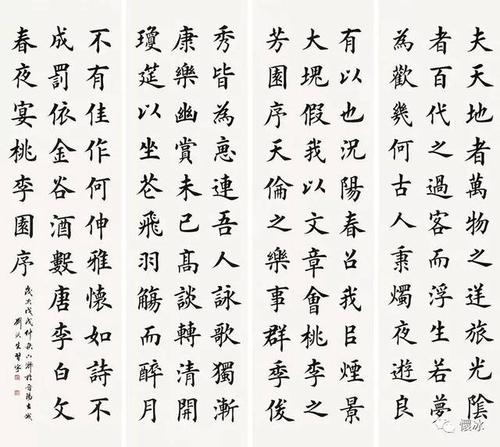 夫天地者萬物之逆旅光陰
者百代之過客而浮生若夢
為歡幾何古人秉燭夜遊良
有以也況陽春召我㠯煙景
大塊假我以文章會桃李之
芳園序天倫之樂事群季俊
秀皆為惠連吾人詠歌獨慚
康樂幽賞未已高談轉清開
瓊筵以坐花飛羽觴而醉月
不有佳作何伸雅懷如詩不
成罰依金谷酒數唐李白文
春夜宴桃李園序
歲次戊戌仲秋於晉陽古城
懷冰